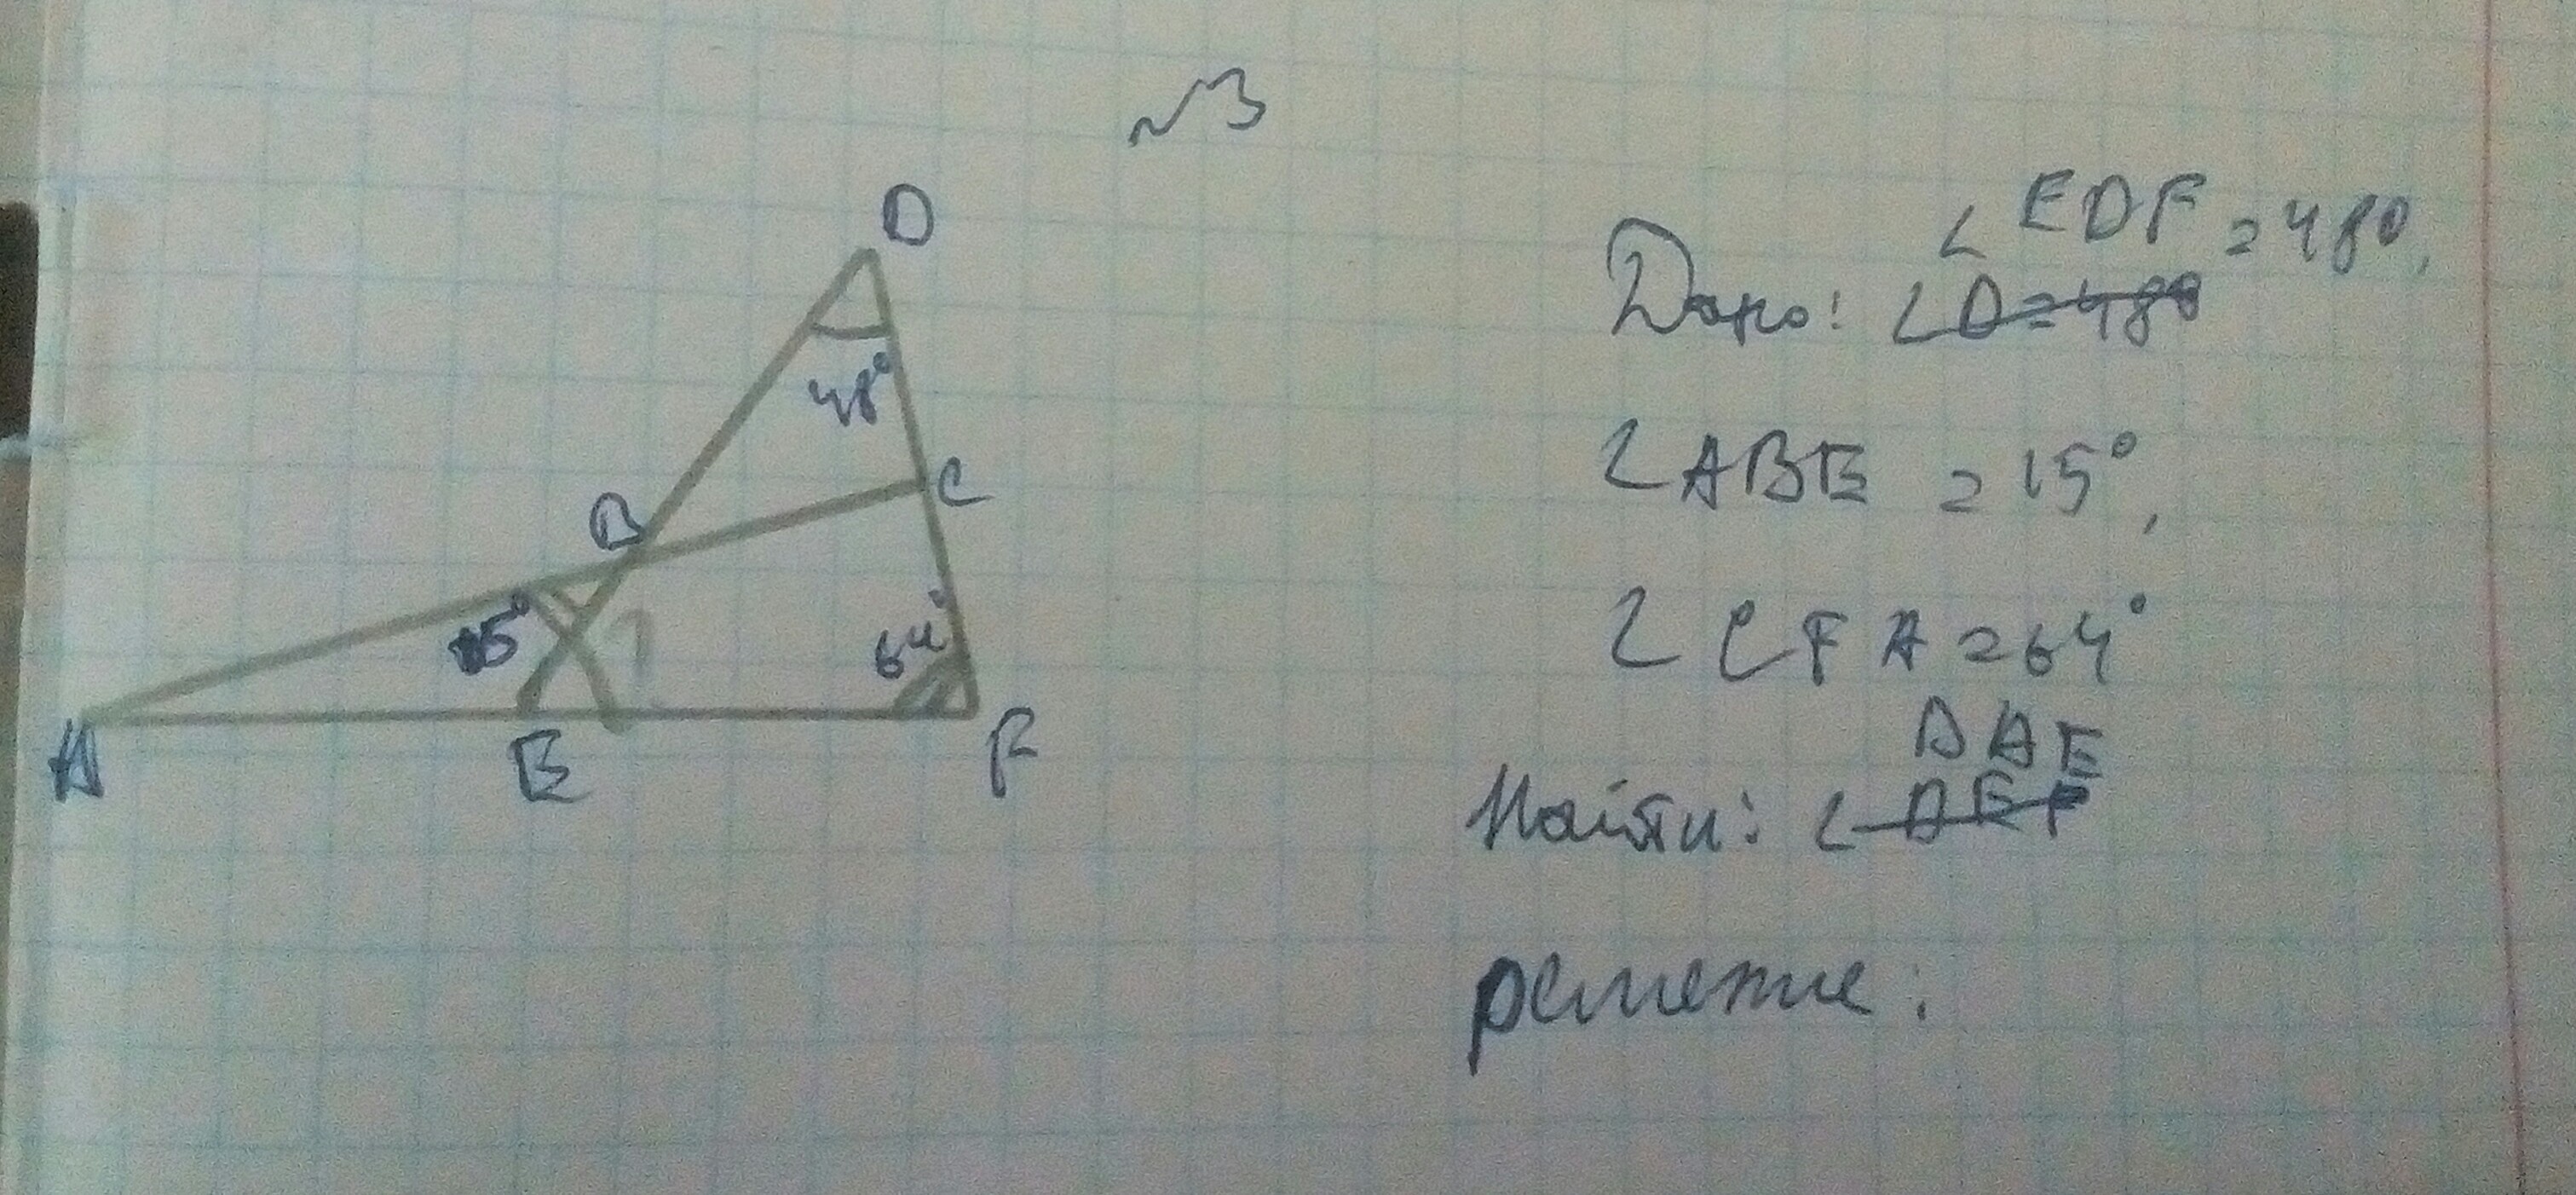 №3
D
48°
B
C
15°
64°
A
E
F
∠EDF = 48°,
Дано: ∠D = 48°
∠ABE = 15°,
∠CFA = 64°
BAE
Найти: ∠DEF
решение: